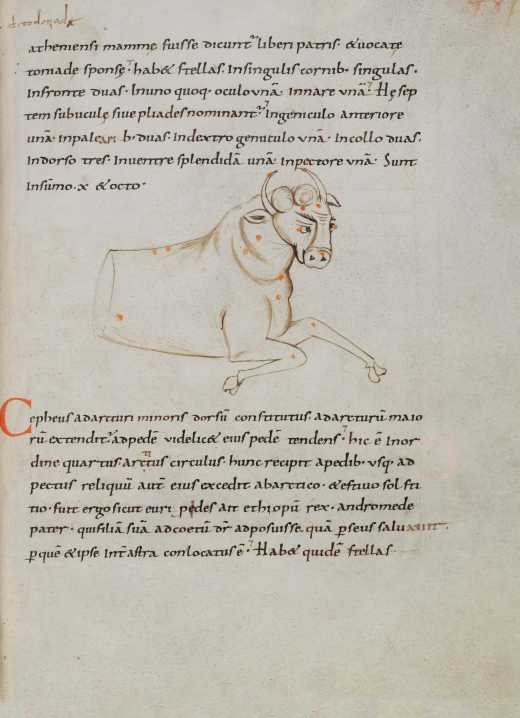 atheniensi mamme fuisse dicunt̄ liberi patris· & vocate
tomade sponse· hab& stellas· Insingulis cornib· singulas·
Infronte duas· Inuno quoq· oculo unā· Innare unā· Hę sep
tem subuculę siue pliades nominant̄· Ingeniculo anteriore
unā· inpale b· duas· Indextro genuculo unā· Incollo duas·
Indorso tres· Inuentre splendidā unā· Inpectore unā· Sunt
Insūmo· x & octo·
Cepheus adarcturi minoris dorsū constitutus· adarcturū maio
rū extendit̄· adpedē videlic& eius pedē tendens· hic ē Inor
dine quartus arctus circulus· hunc recipit apedib· usq· ad
pectus reliquū aut̄ eius excedit abarctico· & estiuo solsti
tio· fuit ergo sicut euripedes ait ethiopū rex· andromede
pater· quifiliā suā adcoetū dr̄ adposuisse· quā pseus saluauit·
pquē & ipse Int̄ astra conlocatus ē· Hab& quidē stellas·